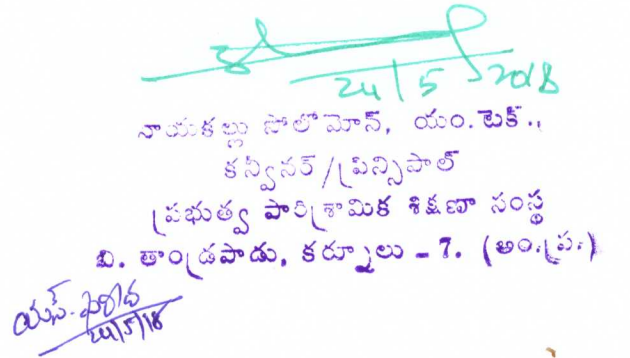 24/5/2018
నాయకల్లు సోలోమోన్, యం.టెక్.,
కన్వీనర్/ప్రిన్సిపాల్
ప్రభుత్వ పారిశ్రామిక శిక్షణా సంస్థ
బి. తాండ్రపాడు, కర్నూలు - 7. (ఆం.ప్ర.)
యస్.
24/5/18